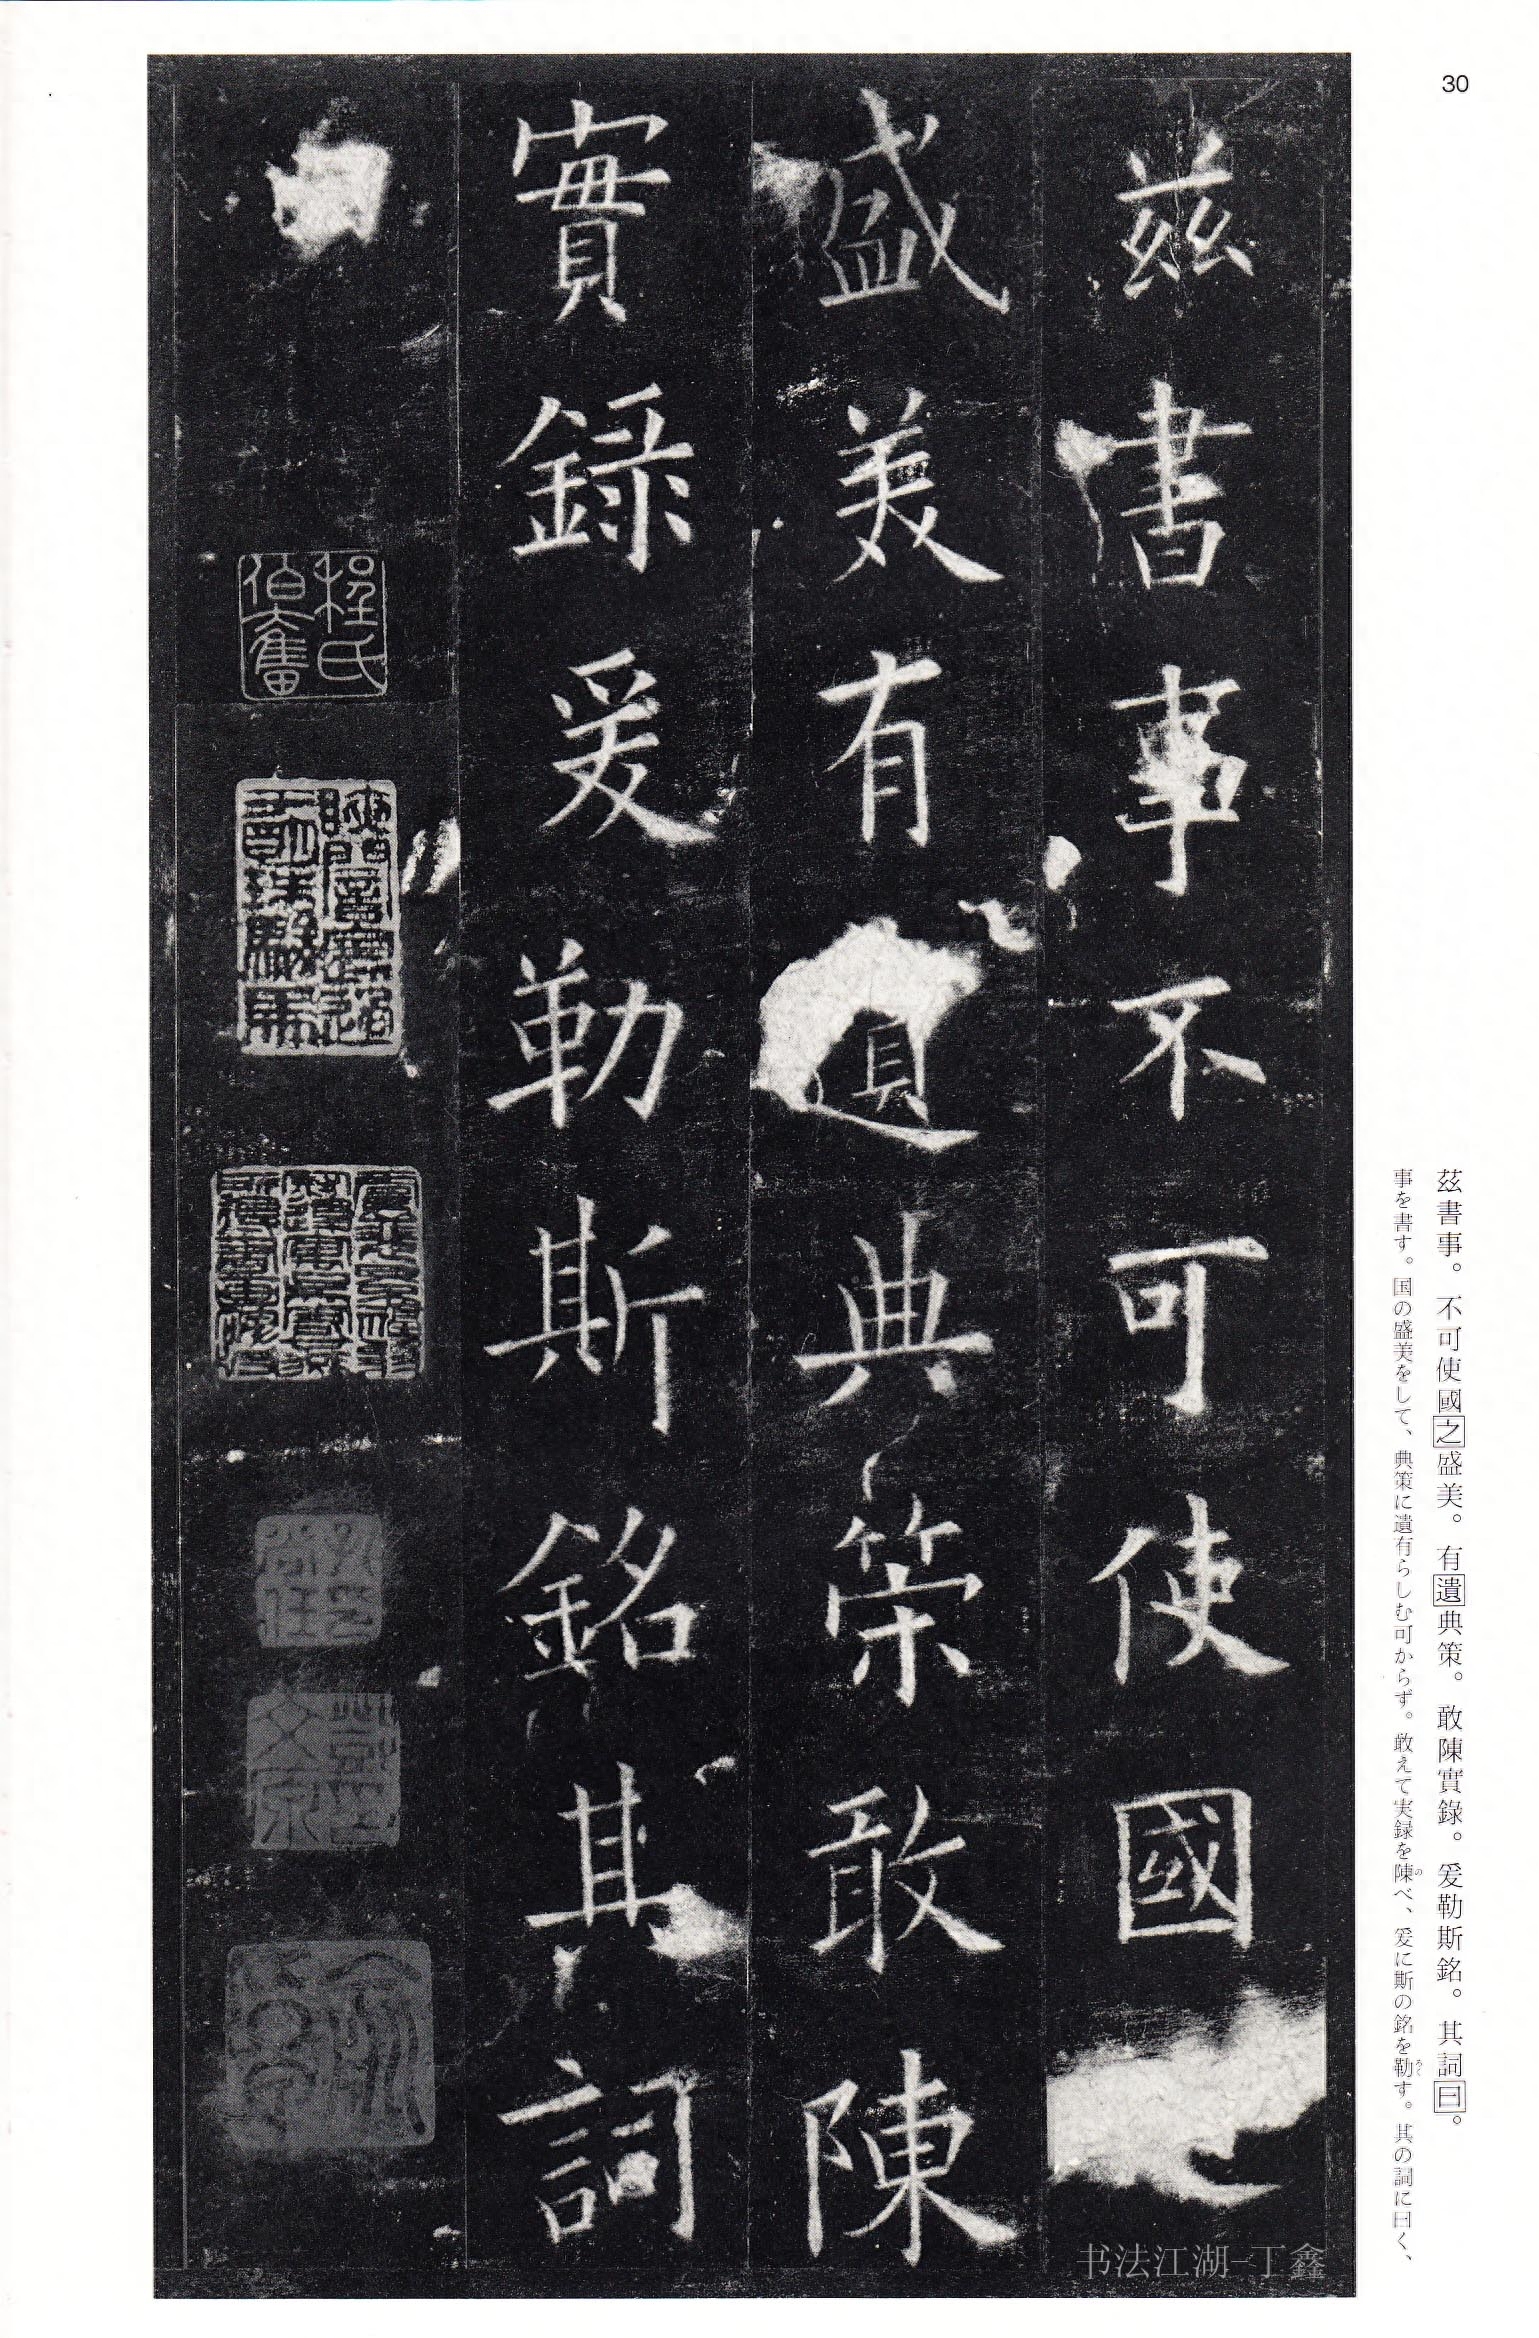 30
茲書事。不可使國之盛美。有遺典策。敢陳實錄。爰勒斯銘。其詞曰。
事を書す。国の盛美をして、典策に遺有らしむ可からず。敢えて実録を陳べ、爰に斯の銘を勒す。其の詞に曰く、
の
ろく
茲書事不可使國
盛美有遺典策敢陳
實錄爰勒斯銘其詞
程氏伯奮
书法江湖-丁鑫